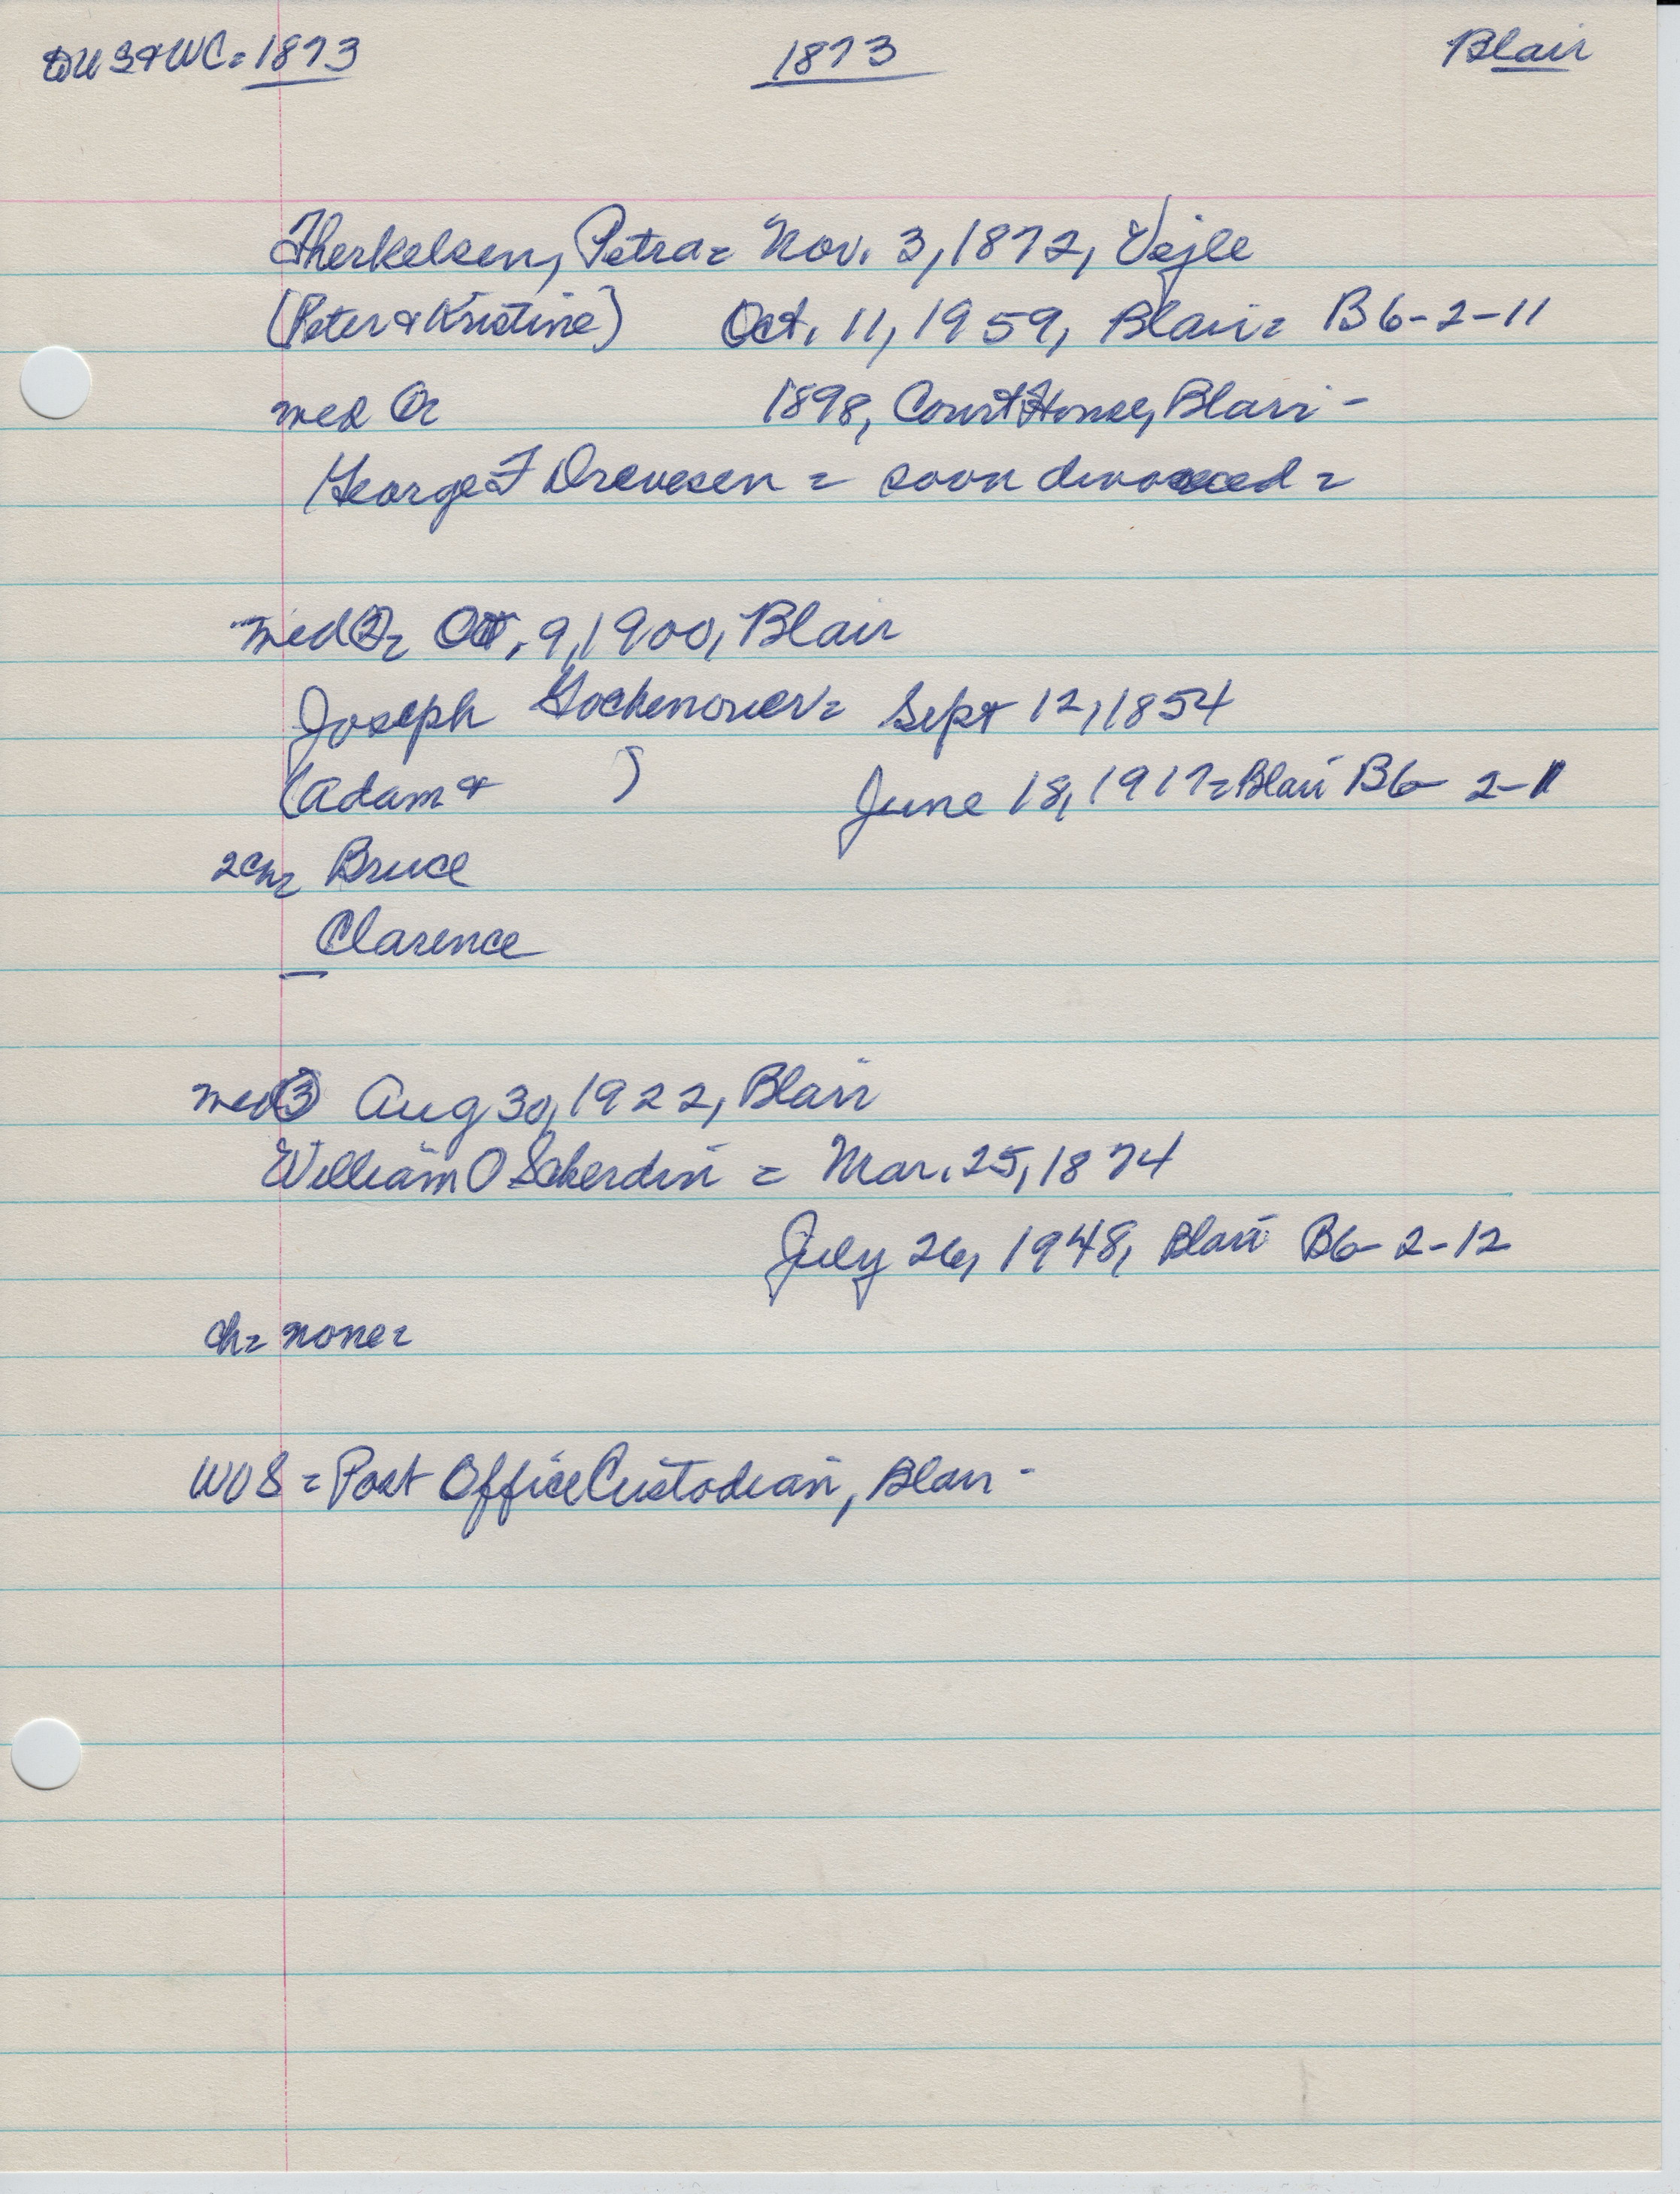 DU S&WC = 1873 1873 Blair
Therkelsen, Petra = Nov. 3, 1872, Vejle
(Peter & Kristine) Oct. 11, 1959, Blair = B6-2-11
med 1898, Court House, Blair -
George F Drevesen = soon divorced =
med ② = Oct. 9, 1900, Blair
Joseph Gochenouer = Sept 12, 1854
(Adam & ) June 18, 1917 = Blair B6-2-
2ch = Bruce
Clarence
med ③ Aug 30, 1922, Blair
William O Sckerdin = Mar. 25, 1874
July 26, 1948, Blair B6-2-12
ch = none =
WOS = Post Office Custodian, Blair -